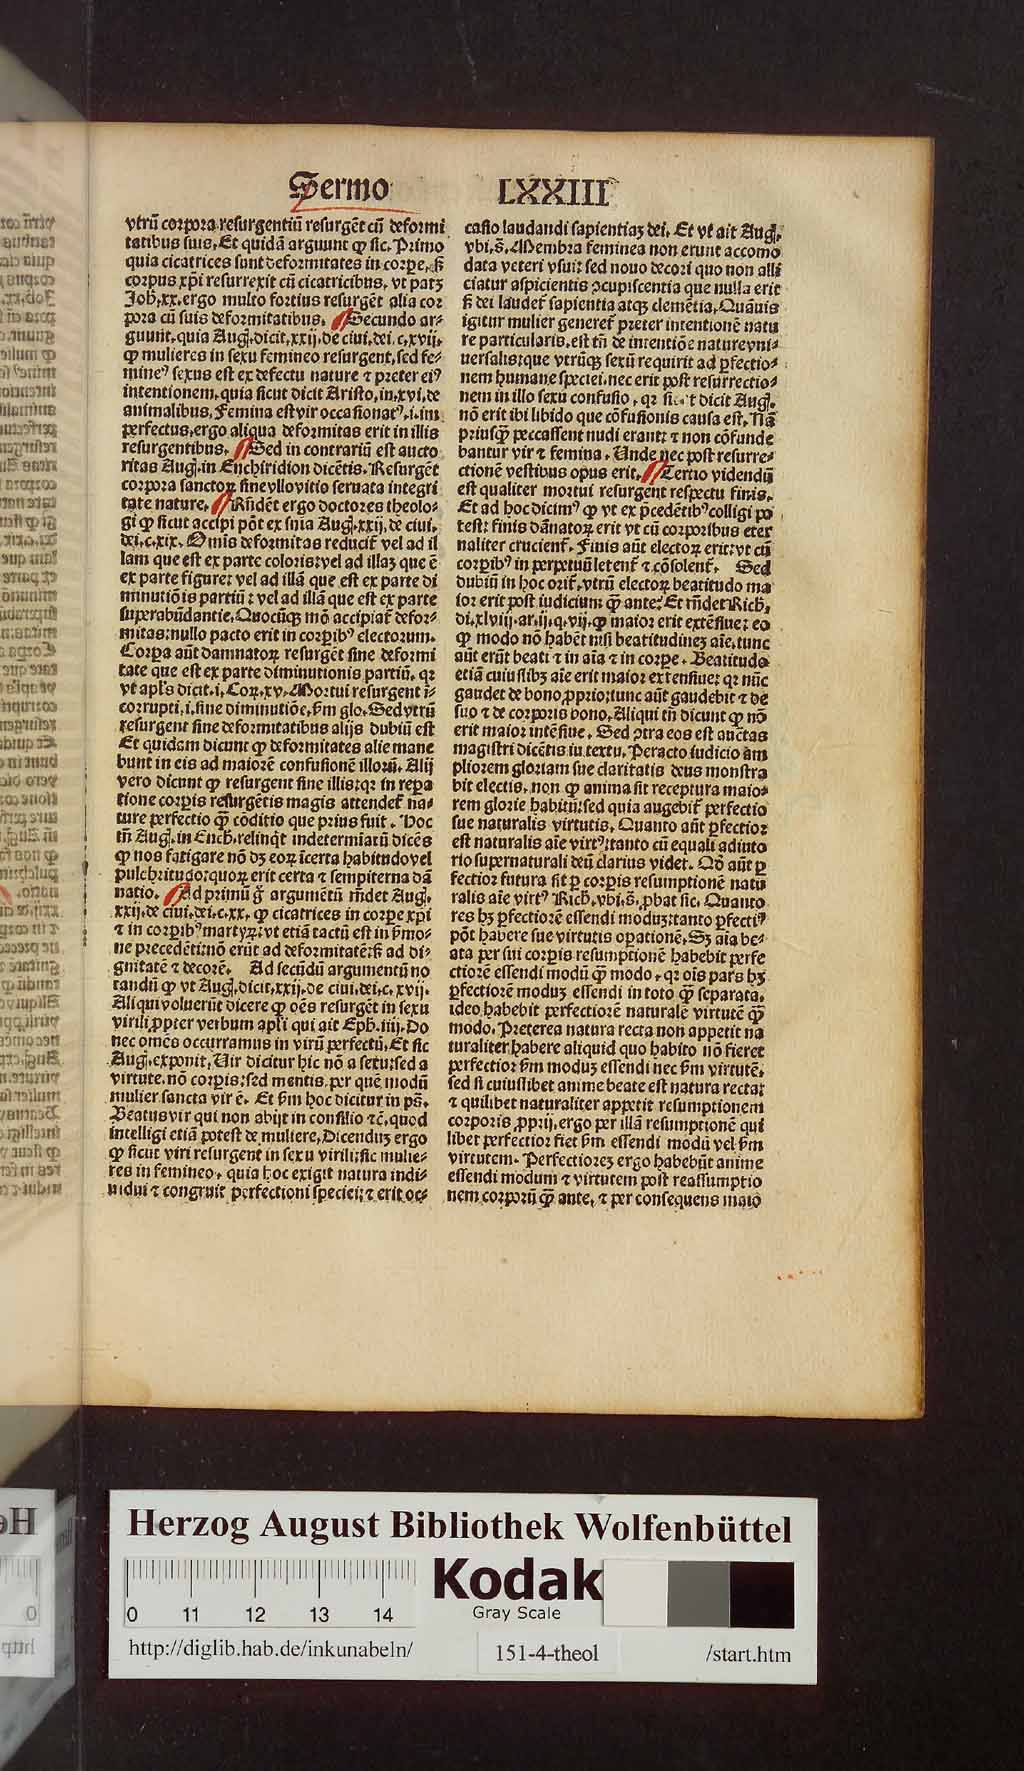 Sermo LXXIII
vtrũ corpora resurgentiũ resurgẽt cũ deformi
tatibus suis. Et quidã arguunt ꝙ sic. Primo
quia cicatrices sunt deformitates in corpe, sꝫ
corpus xp̃i resurrexit cũ cicatricibus, vt patꝫ
Joh̃. xx. ergo multo fortius resurgẽt alia cor
pora cũ suis deformitatibus. Secundo ar-
guunt, quia Aug̃. dicit. xxij. de ciui. dei. c. xvij.
ꝙ mulieres in sexu femineo resurgent, sed fe-
mineꝰ sexus est ex defectu nature ⁊ preter eiꝰ
intentionem, quia sicut dicit Aristo. in. xvi. de
animalibus. Femina est vir occasionatꝰ, .i. im
perfectus, ergo aliqua deformitas erit in illis
resurgentibus. Sed in contrariũ est aucto
ritas Aug̃. in Enchiridion dicẽtis. Resurgẽt
corpora sanctoꝝ sine vllo vitio seruata integri
tate nature. Rñdẽt ergo doctores theolo-
gi ꝙ sicut accipi põt ex sñia Aug̃. xxij. de ciui.
dei. c. xix. Omĩs deformitas reducit̃ vel ad il
lam que est ex parte coloris: vel ad illaꝫ que ẽ
ex parte figure: vel ad illã que est ex parte di
minutiõis partiũ: vel ad illã que est ex parte
superabũdantie. Quocũqꝫ mõ accipiat̃ defor-
mitas: nullo pacto erit in corpibꝰ electorum.
Corpa aũt damnatoꝝ resurgẽt sine deformi
tate que est ex parte diminutionis partiũ, qꝛ
vt apl̃s dicit .i. Coꝝ. xv. Mortui resurgent ĩ-
corrupti, .i. sine diminutiõe, ẽm glo. Sed vtrũ
resurgent sine deformitatibus alijs dubiũ est
Et quidam dicunt ꝙ deformitates alie mane
bunt in eis ad maiorẽ confusionẽ illorũ. Alij
vero dicunt ꝙ resurgent sine illis: qꝛ in repa
tione corpis resurgẽtis magis attendet̃ na-
ture perfectio ꝗ̃ cõditio que prius fuit. Hoc
tñ Aug̃. in Ench̃. relinq̃t indeterminatũ dicẽs
ꝙ nos fatigare nõ dꝫ eoꝝ ĩcerta habitudo vel
pulchritudo: quoꝝ erit certa ⁊ sempiterna dã
natio. Ad primũ g̃ argumẽtũ rñdet Aug̃.
xxij. de ciui. dei. c. xx. ꝙ cicatrices in corpe xp̃i
⁊ in corpibꝰ martyꝝ: vt etiã tactũ est in ẽmo-
ne precedẽti: nõ erũt ad deformitatẽ: sꝫ ad di-
gnitatẽ ⁊ decorẽ. Ad secũdũ argumentũ no
tandũ ꝙ vt Aug̃. dicit. xxij. de ciui. dei. c. xvij.
Aliqui voluerũt dicere ꝙ oẽs resurgẽt in sexu
virili, ꝓpter verbum apl̃i qui ait Eph̃. iiij. Do
nec omẽs occurramus in virũ perfectũ. Et sic
Aug̃. exponit. Vir dicitur hic nõ a sexu: sed a
virtute. nõ corpis: sed mentis. per quẽ modũ
mulier sancta vir ẽ. Et ẽm hoc dicitur in ps̃.
Beatus vir qui non abijt in consilio ⁊c̃. quod
intelligi etiã potest de muliere. Dicenduꝫ ergo
ꝙ sicut viri resurgent in sexu virili: sic mulie-
res in femineo, quia hoc exigit natura indi-
uidui ⁊ congruit perfectioni speciei: ⁊ erit oc-
casio laudandi sapientiaꝫ dei. Et vt ait Aug̃.
vbi. s̃. Membra feminea non erunt accomo
data veteri vsui: sed nouo decori quo non alli
ciatur aspicientis ꝯcupiscentia que nulla erit
sꝫ dei laudet̃ sapientia atqꝫ clemẽtia. Quãuis
igitur mulier generet̃ preter intentionẽ natu
re particularis, est tñ de intentiõe nature vni-
uersalis: que vtrũqꝫ sexũ requirit ad ꝑfectio-
nem humane speciei. nec erit post resurrectio-
nem in illo sexu confusio, qꝛ sicut dicit Aug̃.
nõ erit ibi libido que cõfusionis causa est. Nã
priusꝗ̃ peccassent nudi erant: ⁊ non cõfunde
bantur vir ⁊ femina. Unde nec post resurre-
ctionẽ vestibus opus erit. Tertio videndũ
est qualiter mortui resurgent respectu finis.
Et ad hoc dicimꝰ ꝙ vt ex p̃cedẽtibꝰ colligi po
test: finis dãnatoꝝ erit vt cũ corporibus eter
naliter crucient̃. Finis aũt electoꝝ erit: vt cũ
corpibꝰ in perpetuũ letent̃ ⁊ cõsolent̃. Sed
dubiũ in hoc orit̃, vtrũ electoꝝ beatitudo ma
ior erit post iudicium ꝗ̃ ante? Et rñdet Rich̃.
di. xlviij. ar. ij. q. vij. ꝙ maior erit extẽsiue: eo
ꝙ modo nõ habẽt nisi beatitudineꝫ aĩe, tunc
aũt erũt beati ⁊ in aĩa ⁊ in corpe. Beatitudo
etiã cuiuslibꝫ aĩe erit maior extensiue: qꝛ nũc
gaudet de bono ꝓprio; tunc aũt gaudebit ⁊ de
suo ⁊ de corporis bono. Aliqui tñ dicunt ꝙ nõ
erit maior intẽsiue. Sed ꝯtra eos est auctas
magistri dicẽtis in textu. Peracto iudicio am
pliorem gloriam sue claritatis deus monstra
bit electis. non ꝙ anima sit receptura maio-
rem glorie habitũ: sed quia augebit̃ perfectio
sue naturalis virtutis. Quanto aũt ꝑfectior
est naturalis aĩe virtꝰ: tanto cũ equali adiuto
rio supernaturali deũ clarius videt. Qõ aũt ꝑ
fectior futura sit ꝑ corpis resumptionẽ natu
ralis aĩe virtꝰ Rich̃. vbi. s̃. ꝓbat sic. Quanto
res hꝫ ꝑfectiorẽ essendi moduꝫ: tanto ꝑfectiꝰ
põt habere sue virtutis oꝑationẽ. Sꝫ aĩa be-
ata per sui corpis resumptionẽ habebit perfe
ctiorẽ essendi modũ ꝗ̃ modo, qꝛ oĩs pars hꝫ
ꝑfectiorẽ moduꝫ essendi in toto ꝗ̃ separata.
ideo habebit perfectiorẽ naturalẽ virtutẽ ꝗ̃
modo. Preterea natura recta non appetit na
turaliter habere aliquid quo habito nõ fieret
perfectior ẽm moduꝫ essendi nec ẽm virtutẽ.
sed si cuiuslibet anime beate est natura recta:
⁊ quilibet naturaliter appetit resumptionem
corporis ꝓprij, ergo per illã resumptionẽ qui
libet perfectior fiet ẽm essendi modũ vel ẽm
virtutem. Perfectioreꝫ ergo habebũt anime
essendi modum ⁊ virtutem post reassumptio
nem corporũ ꝗ̃ ante, ⁊ per consequens maio
Herzog August Bibliothek Wolfenbüttel
Kodak
Gray Scale
0 11 12 13 14
http://diglib.hab.de/inkunabeln/ 151-4-theol /start.htm